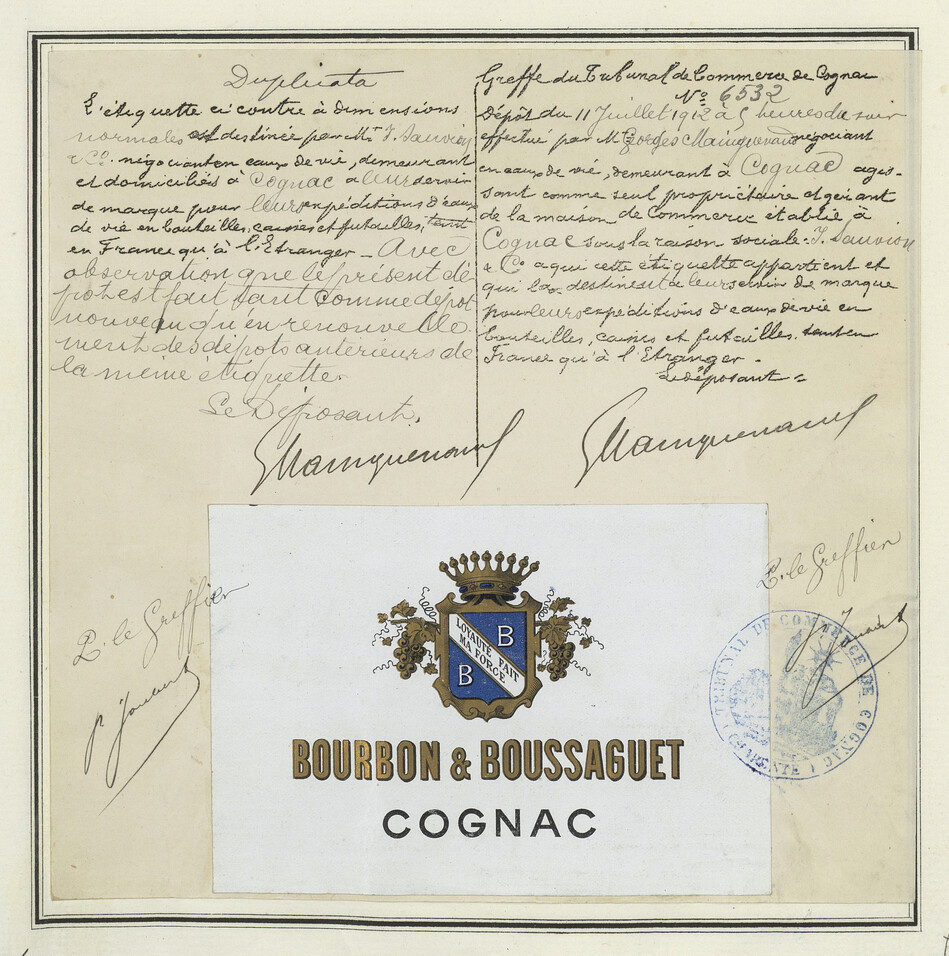 Duplicata
L'étiquette ci contre à dimensions
normales est destinée par Mrs J. Sauvion
& Co. négociants en eaux de vie, demeurant
et domiciliés à Cognac à leur servir
de marque pour leurs expéditions d'eaux
de vie en bouteilles, caisses et futailles, tant
en France qu'à l'Etranger - Avec
observation que le présent dé
pot est fait tant comme dépot
nouveau qu'en renouvelle
ment des dépots antérieurs de
la même étiquette.
Le Déposant,
GMainguenaud
Greffe du Tribunal de Commerce de Cognac
No 6532
Dépôt du 11 Juillet 1912 à 5 heures du soir
effectué par M Georges Mainguenaud négociant
en eaux de vie, demeurant à Cognac agis-
sant comme seul propriétaire et gérant
de la maison de Commerce établie à
Cognac sous la raison sociale: J. Sauvion
& Co a qui cette étiquette appartient et
qui destinent à leur servir de marque
pour leurs expéditions d'eaux de vie en
bouteilles, caisses et futailles, tant en
France qu'à l'Etranger -
Le déposant =
GMainguenaud
P. le Greffier
P. le Greffier
LOYAUTÉ FAIT
MA FORCE
B
B
BOURBON & BOUSSAGUET
COGNAC
TRIBUNAL DE COMMERCE DE COGNAC
(CHARENTE)